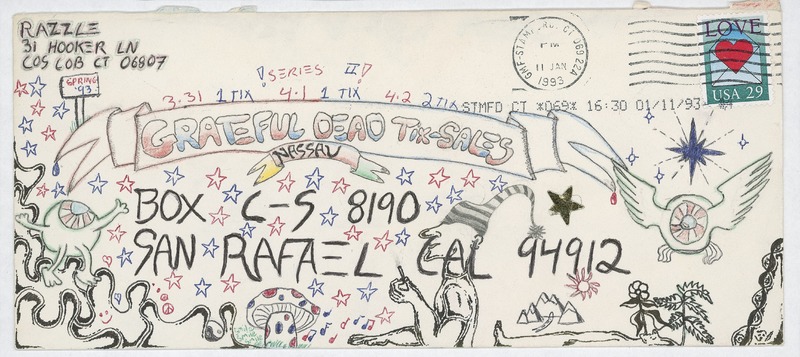 RAZZLE
31 HOOKER LN
COS COB CT 06807
SPRING
'93
!SERIES II!
3·31 1 TIX 4·1 1 TIX 4·2 2 TIX
GRATEFUL DEAD TIX-SALES
NASSAU
BOX C-S 8190
SAN RAFAEL CAL 94912
GMF STAMFORD, CT 069 22A
PM
11 JAN
1993
STMFD CT *069* 16:30 01/11/93
LOVE
USA 29